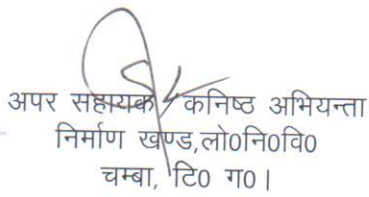 अपर सहायक / कनिष्ठ अभियन्ता
निर्माण खण्ड,लो0नि0वि0
चम्बा, टि0 ग0।